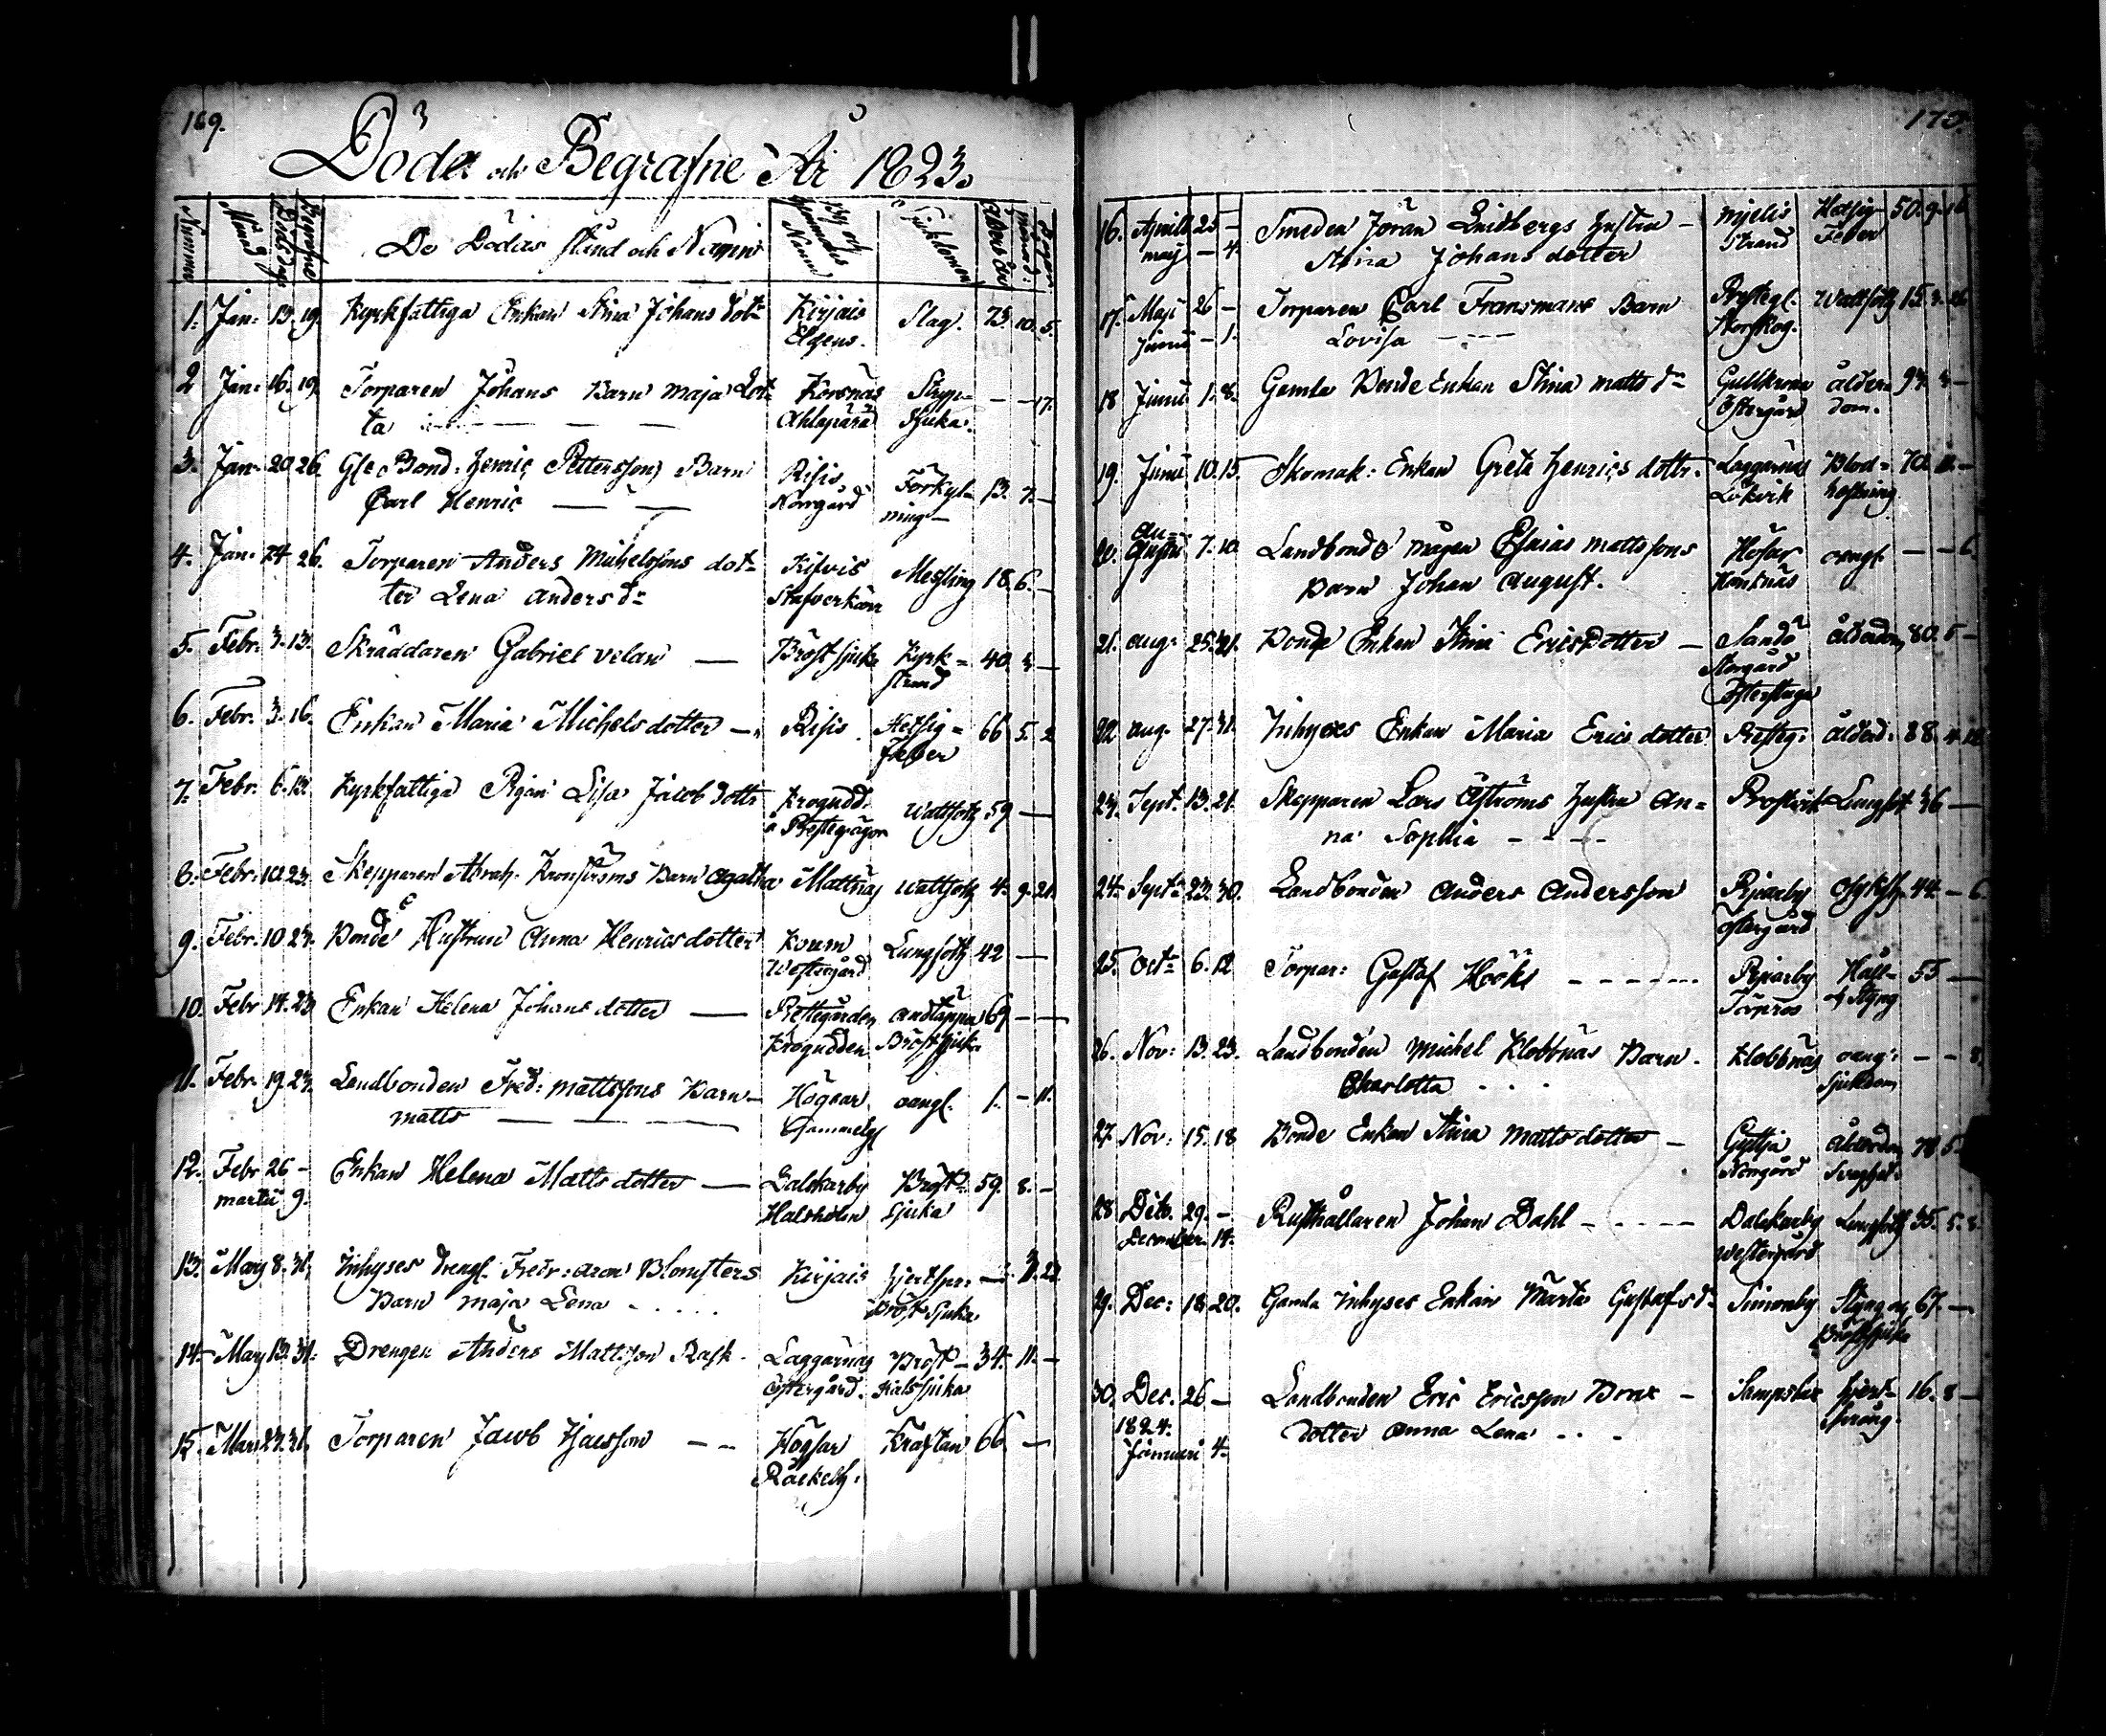 169.
Döda och Begrafne År 1823.
Nummer Månad Död Dag Begrafne De Dödas stånd och Namn By och Hemmans Namn Sjukdomen Ålder År Månad: Dagar
1. Jan: 13. 19. Kyrkfattiga Enkan Stina Johans dotr Kirjais Slag. 73. 10. 5.
Elgens.
2 Jan: 16. 19. Torparen Johans Barn Maja Lot= Korsnäs Stryp= — — 17.
ta — — — Ahlapära Sjuka.
3. Jan: 20. 26. Gle Bond: Henric Pettersons Barn Risis Förkyl= 13. 7. —
Carl Henric — — Norrgård ning —
4. Jan: 24. 26. Torparen Anders Michelsons dot= Kifvis Messling 18. 6. —
ter Lena Anders dr Stafverkärr
5. Febr: 3. 13. Skräddaren Gabriel Velan — Bröstsjuka Kyrk= 40. 3. —
strand
6. Febr. 3. 16. Enkan Maria Michelsdotter — Risis Hetsig= 66 5. 2
Feber
7. Febr. 6. 12. Kyrkfattiga Pigan Lisa Jacob dottr Krogudd. Wattsotg 59 —
å Prestegågor
8. Febr. 10. 23. Skepparen Abrah. Kronströms Barn Agatha Mattnäs Wattsotg 4. 9. 21.
9. Febr. 10. 23. Bonde Hustrun Anna Henricsdotter Koum Lungsotg 42 —
Westergård
10. Febr 14. 23 Enkan Helena Johans dotter — Prestgården Andtäppa 69 — —
Krogudden Bröstsjuka
11. Febr. 19. 23. Landbonden Fred: Mattssons Barn — Högsar oangl. 1. — 11.
Matts — — — Gammelg
12. Febr 26 — Enkan Helena Matts dotter — Dalskarby Bröst= 59. 8. —
Martii 9. Halsholm Sjuka
13. Mars 8. 31. Inhyses drengl. Fredr: Aron Blomsters Kirjais hjertspr: — 3. 22
Barn Maja Lena . . . . . Bröst Sjuka
14. Mars 13. 31. Drengen Anders Mattsson Rask — Laggarnäs Bröst — 34. 11. —
Östergård. Halssjuka
15. Mars 23. 31. Torparen Jacob Isacsson — — Högsar Kräftan 66 —
Räckelg.
170.
16. Aprill 25 — Smeden Jöran Lindbergs Hustru — Mjelis Hetsig= 50. 9. 16
Maj — 4. Stina Johans dotter Strand Feber
17. Maji 26 — Torparen Carl Fransmans Barn Prestegl. Wattsotg 15. 3. 26.
Junii — 1. Lovisa — — Norskog.
18 Junii 1. 8. Gamla Bonde Enkan Stina Matts dr Gullkrona Ålder= 94. 3 —
Östergård dom.
19. Junii 10. 15. Skomak: Enkan Greta Henrics dottr. Laggarnäs Blod= 70. 11. —
Lökvik hostning
20. Au=
gusti 7. 10 Landbonde mågen Esaias Mattssons Högsar oangl. — — 6.
Barn Johan August. Honknäs
21. Aug: 25. 31. Bonde Enkan Stina Ericsdotter — Sandö Ålderdom 80. 5 —
Norgård
Österstuga
22 Aug. 27. 31. Inhyses Enkan Maria Erics dotter Presteg: Ålderd: 88. 4. 12
23. Sept. 13. 21. Skepparen Lars Åströms Hustru An= Prostvik Lungsot 36 —
na Sophia - - - -
24. Septr 23. 30. Landbonden Anders Andersson Pjarby 44 — 6.
Östergård
25. Octr 6. 12 Torpar: Gustaf Höök - - - - - - Pjarby Håll= 55 —
Torpros o Styng
26. Nov: 13. 23. Landbonden Michel Klobbnäs Barn. Klobbnäs oang: — — 8.
Charlotta . . . Sjukdom
27 Nov: 15. 18 Bonde Enkan Stina Matts dotter — Gyttja Ålderdom 78 5
Norrgård Svaghet
28 Dito. 29. — Rusthållaren Johan Dahl - - - - Dalskarby Lungsotg 35. 5. 8.
December 14. Westergård
29. Dec: 18. 20. Gamla Inhyses Enkan Märta Gustafs dr Simonby Styng og 67. —
Bröstsjuka
30. Dec. 26. — Landbonden Eric Ericsson Bonx — hjert= 16. 8 —
1824. dotter Anna Lena . . . språng.
Januari 4.